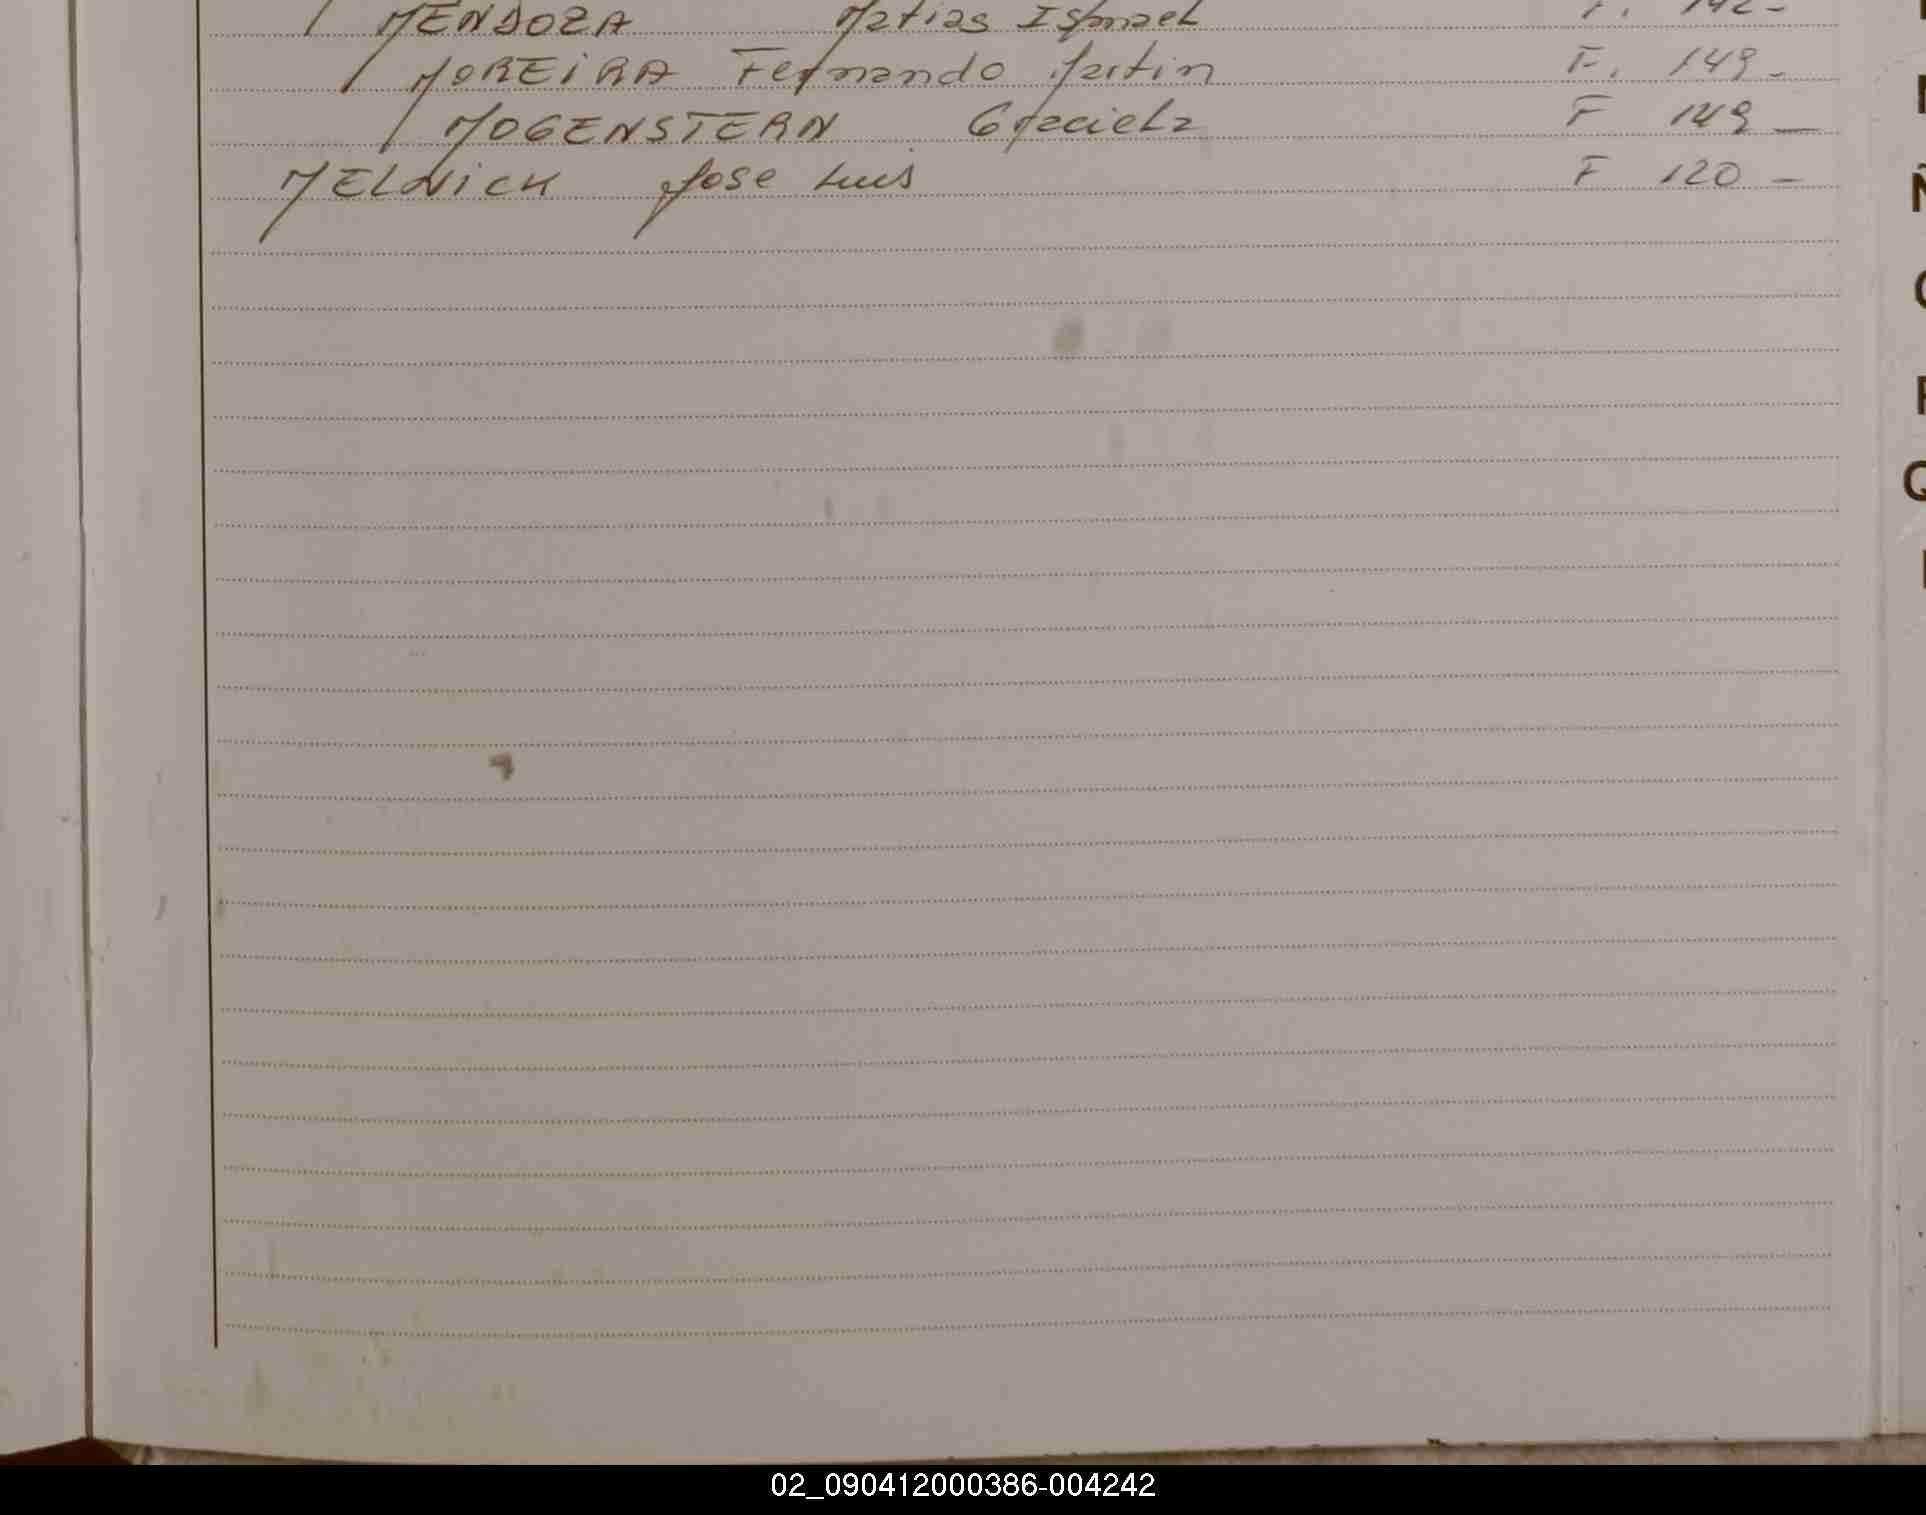 MENDOZA Matias Ismael F. 142-
MOREIRA Fernando Martin F. 149-
MOGENSTERN Graciela F 149-
MELNICK Jose Luis F 120-
Q
02_090412000386-004242